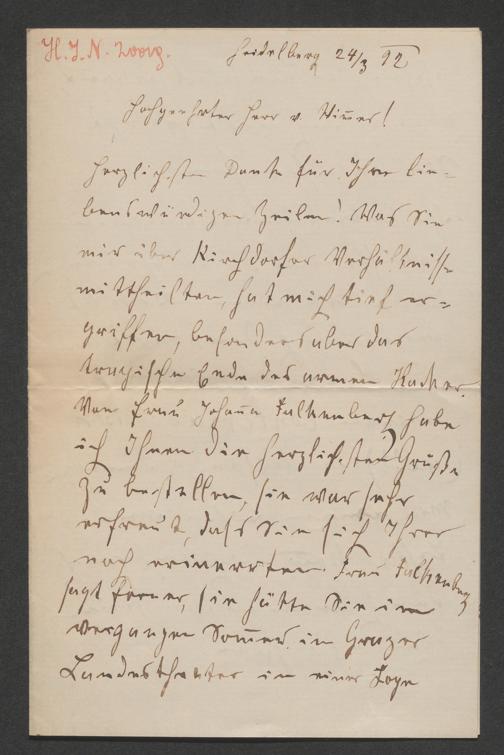 H. I. N. 20019.
Heidelberg 24/3 92
Hochgeehrter Herr v.
Herzlichsten Dank für Ihre lie-
benswürdigen Zeilen! Was Sie
mir über Kirchdorfer Verhältnisse
mittheilten, hat mich tief er=
griffen, besonders aber das
tragische Ende des armen
Von Frau Johann Falkenberg habe
ich Ihnen die herzlichsten Grüße
zu bestellen, sie war sehr
erfreut, dass Sie sich Ihrer
noch erinnerten. Frau Falkenberg
sagt ferner, sie hätte Sie im
vergangen Sommer im Grazer
Landestheater in einer Loge